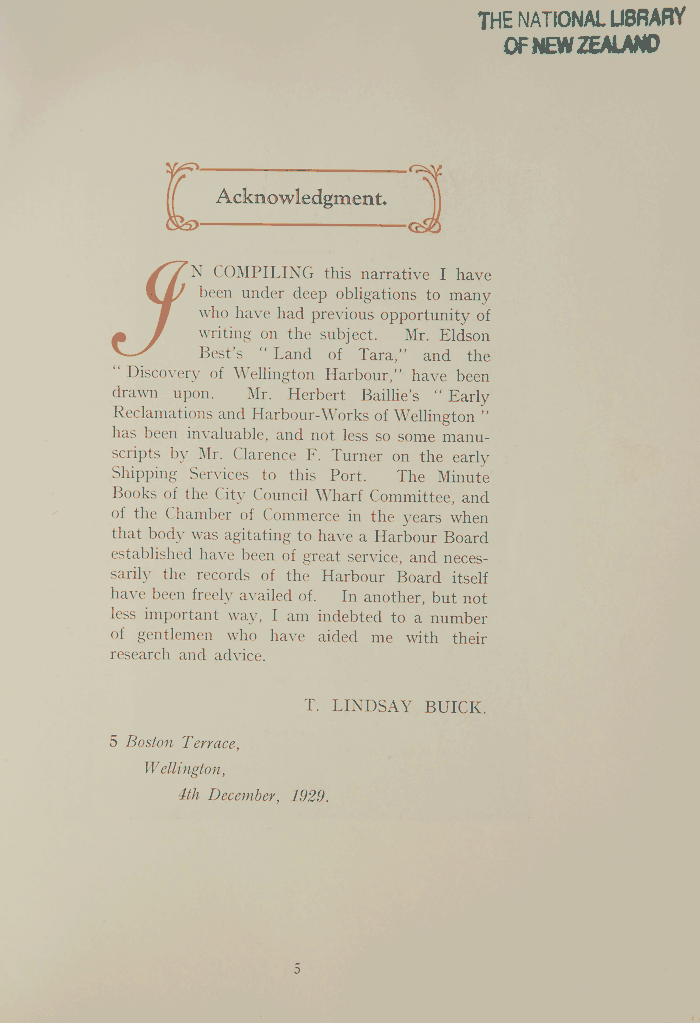 THE NATIONAL LIBRARY
OF NEW ZEALAND
Acknowledgment.
IN COMPILING this narrative I have
been under deep obligations to many
who have had previous opportunity of
writing on the subject. Mr. Eldson
Best's "Land of Tara," and the
"Discovery of Wellington Harbour," have been
drawn upon. Mr. Herbert Baillie's "Early
Reclamations and Harbour-Works of Wellington"
has been invaluable, and not less so some manu-
scripts by Mr. Clarence F. Turner on the early
Shipping Services to this Port. The Minute
Books of the City Council Wharf Committee, and
of the Chamber of Commerce in the years when
that body was agitating to have a Harbour Board
established have been of great service, and neces-
sarily the records of the Harbour Board itself
have been freely availed of. In another, but not
less important way, I am indebted to a number
of gentlemen who have aided me with their
research and advice.
T. LINDSAY BUICK.
5 Boston Terrace,
Wellington,
4th December, 1929.
5